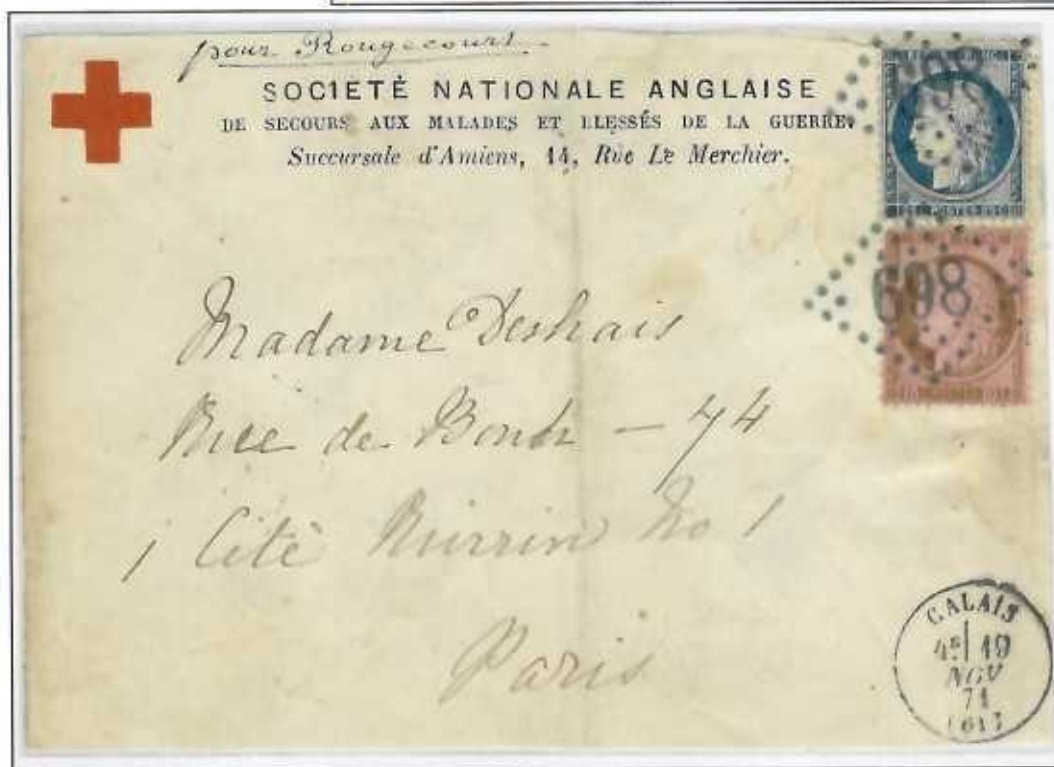 pour Rougecourt
SOCIETÉ NATIONALE ANGLAISE
DE SECOURS AUX MALADES ET BLESSÉS DE LA GUERRE.
Succursale d'Amiens, 14, Rue Le Merchier.
698
Madame Deshais
Rue de Bondi — 74
Cité No 1
Paris
CALAIS
4E 19
NOV
71
(61)